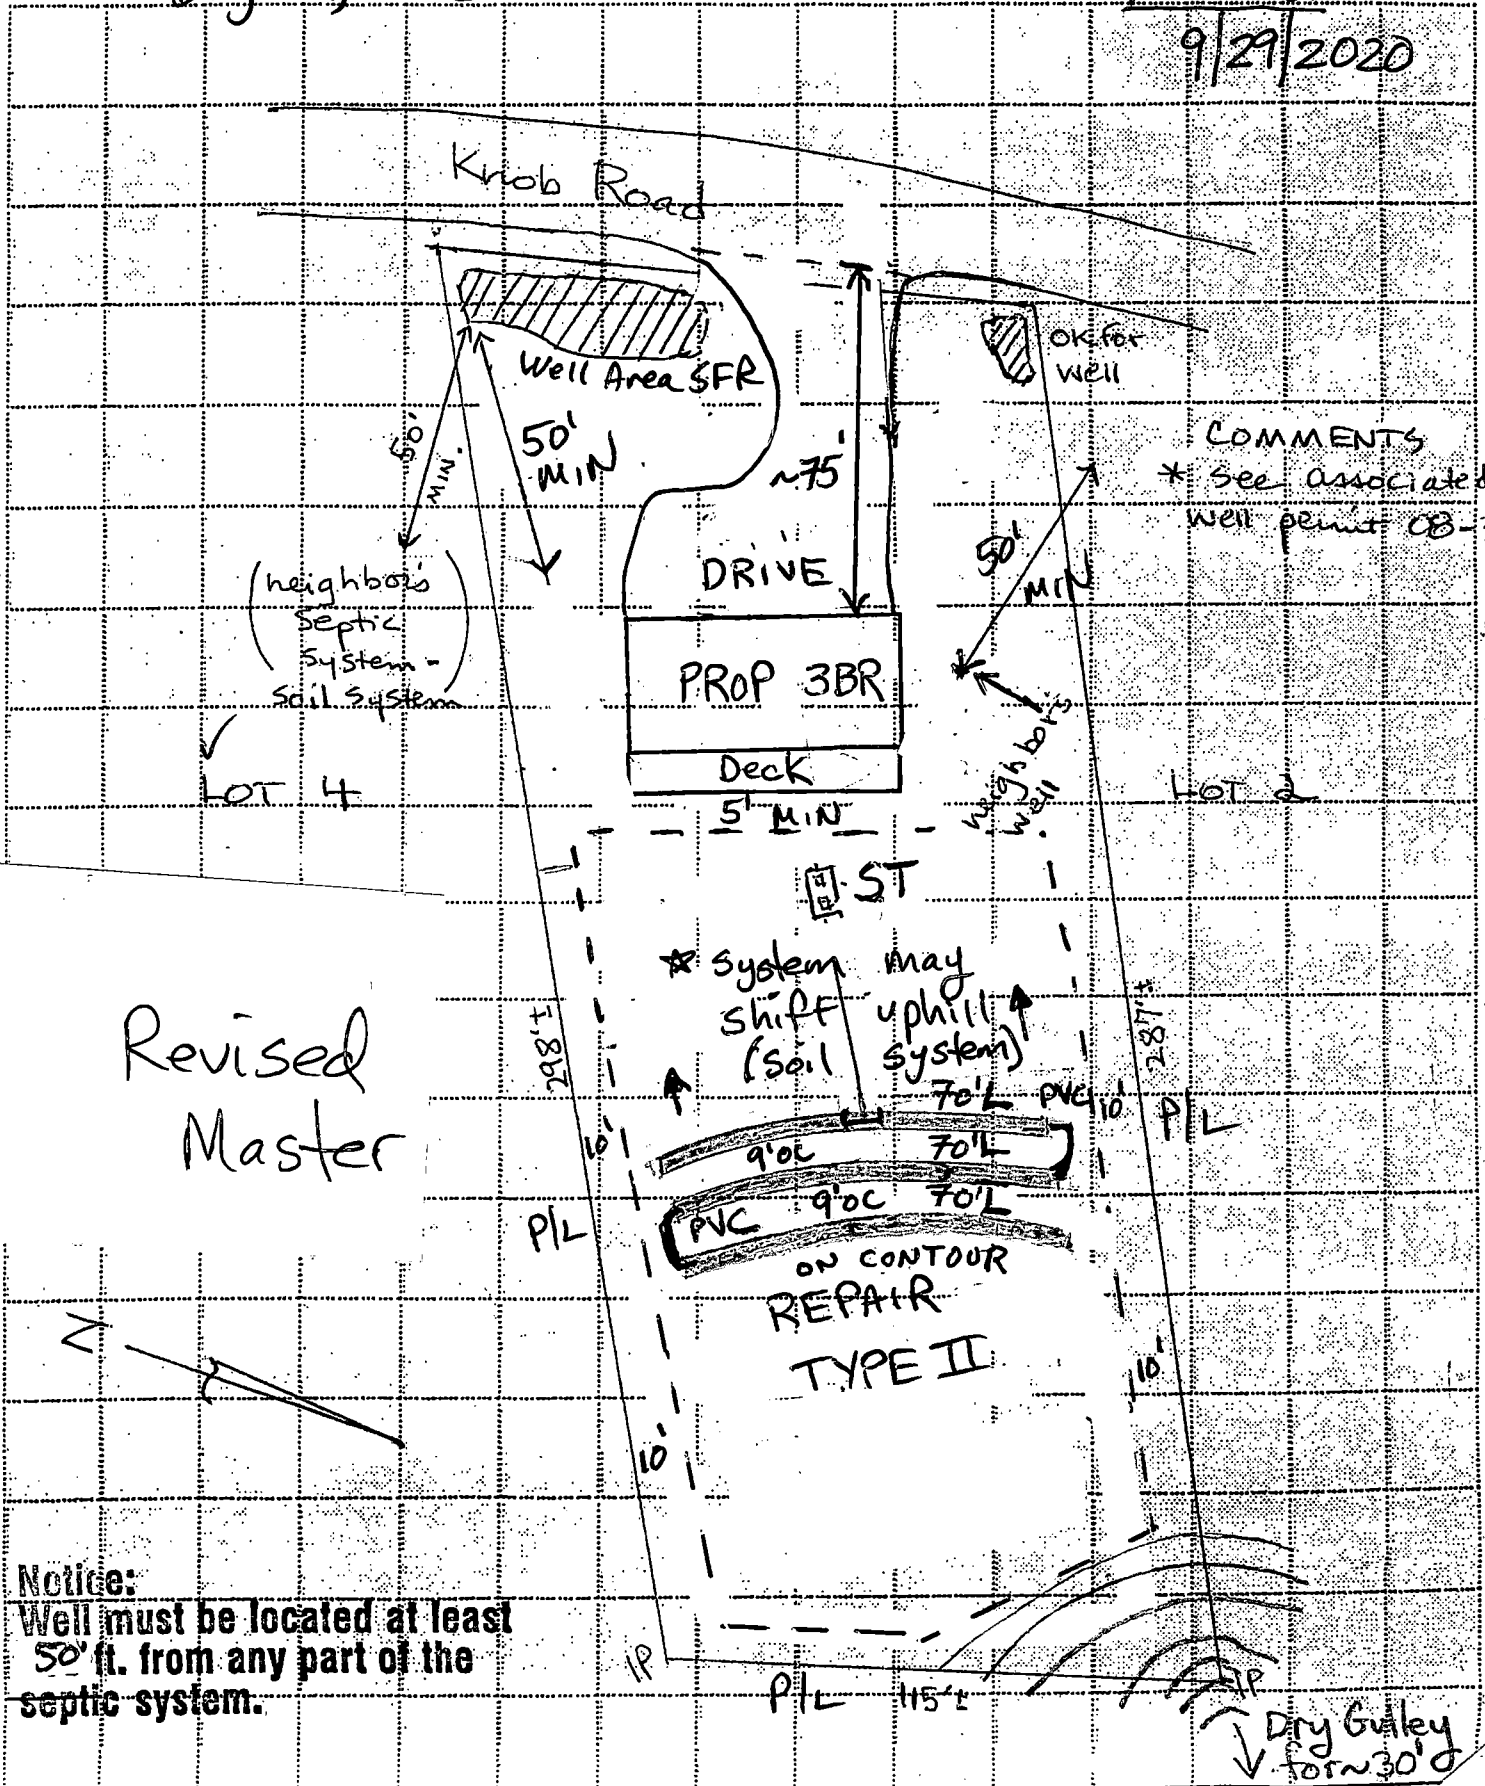 9/29/2020
Knob Road
Well Area SFR
OK for
well
50'
MIN.
50'
MIN
~75'
COMMENTS
* See associated
well permit 08-
50'
MIN
DRIVE
(neighbor's
septic
system -
soil system)
PROP 3BR
neighbor's
well
Deck
LOT 4
LOT 2
5' MIN
ST
* system may
shift uphill
(soil system)
298'±
287'±
Revised
Master
70'L PVC 10' P/L
10'
9'oc 70'L
9'oc 70'L
P/L
PVC
ON CONTOUR
REPAIR
TYPE II
N
10'
10'
Notice:
Well must be located at least
50' ft. from any part of the
septic system.
IP
P/L 115'±
IP
Dry Gulley
for ~30'